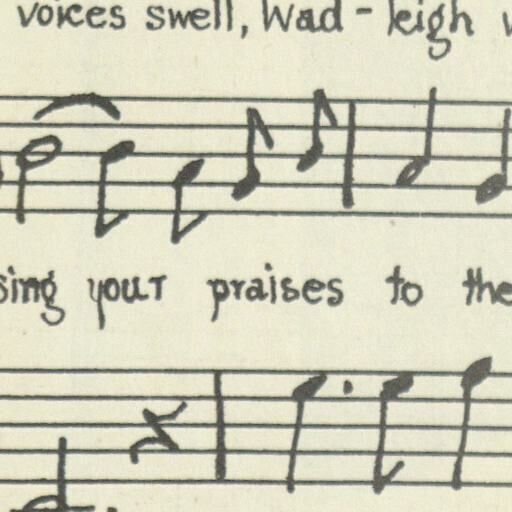 voices swell, Wad-leigh
sing your praises to the